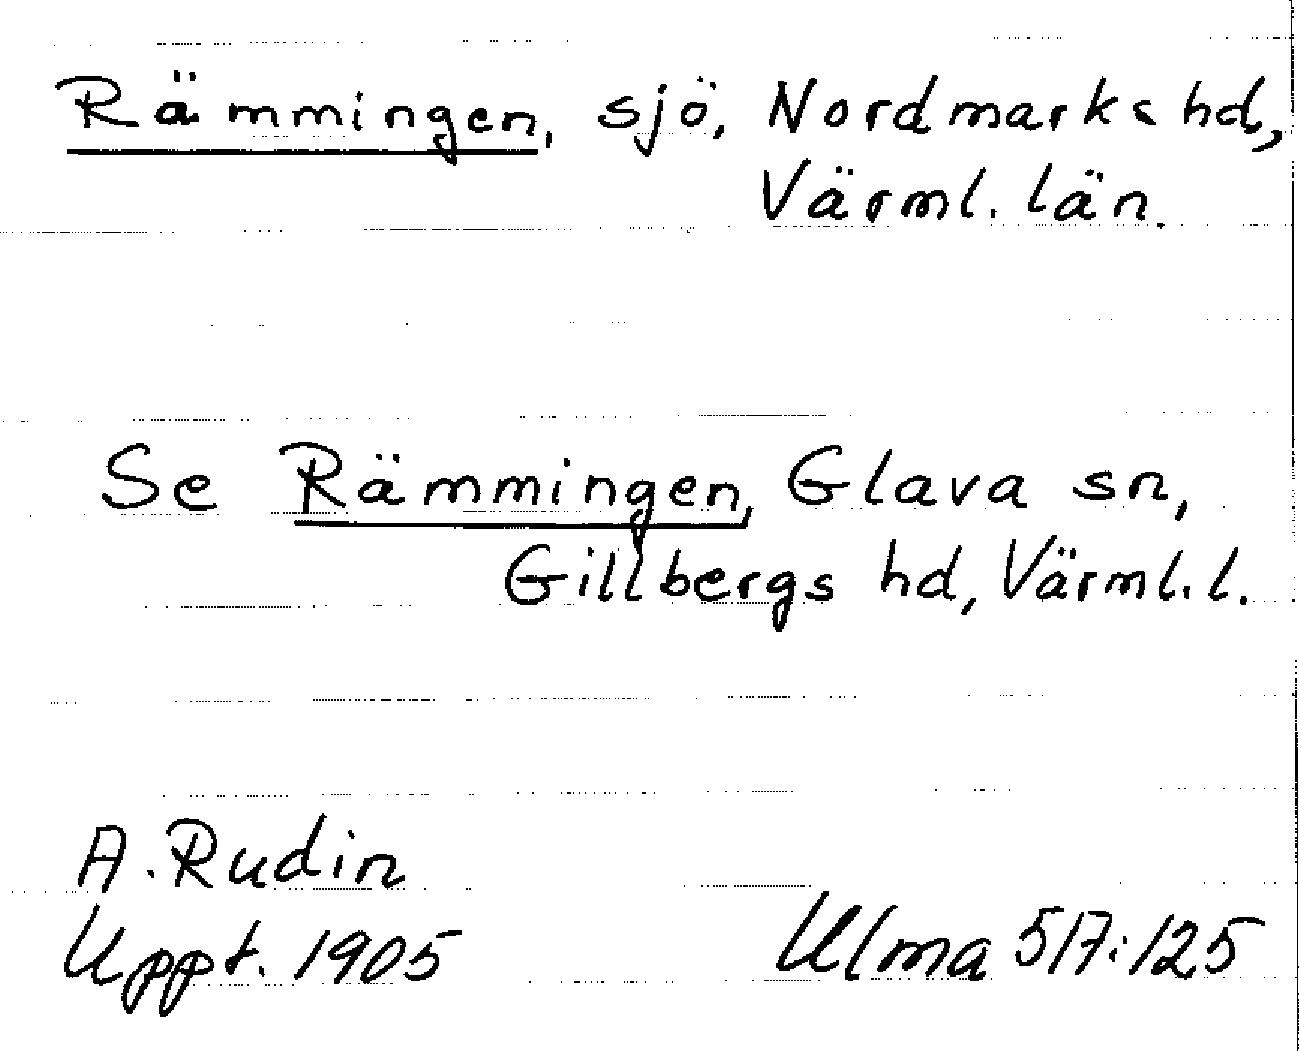 Rämmingen, sjö, Nordmarks hd,
Värml. län.
Se Rämmingen, Glava sn,
Gillbergs hd, Värml. l.
A. Rudin
Uppt. 1905
Ulma 517:125